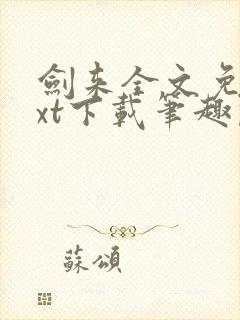 劍來全文免
xt下載筆趣
蘇頌